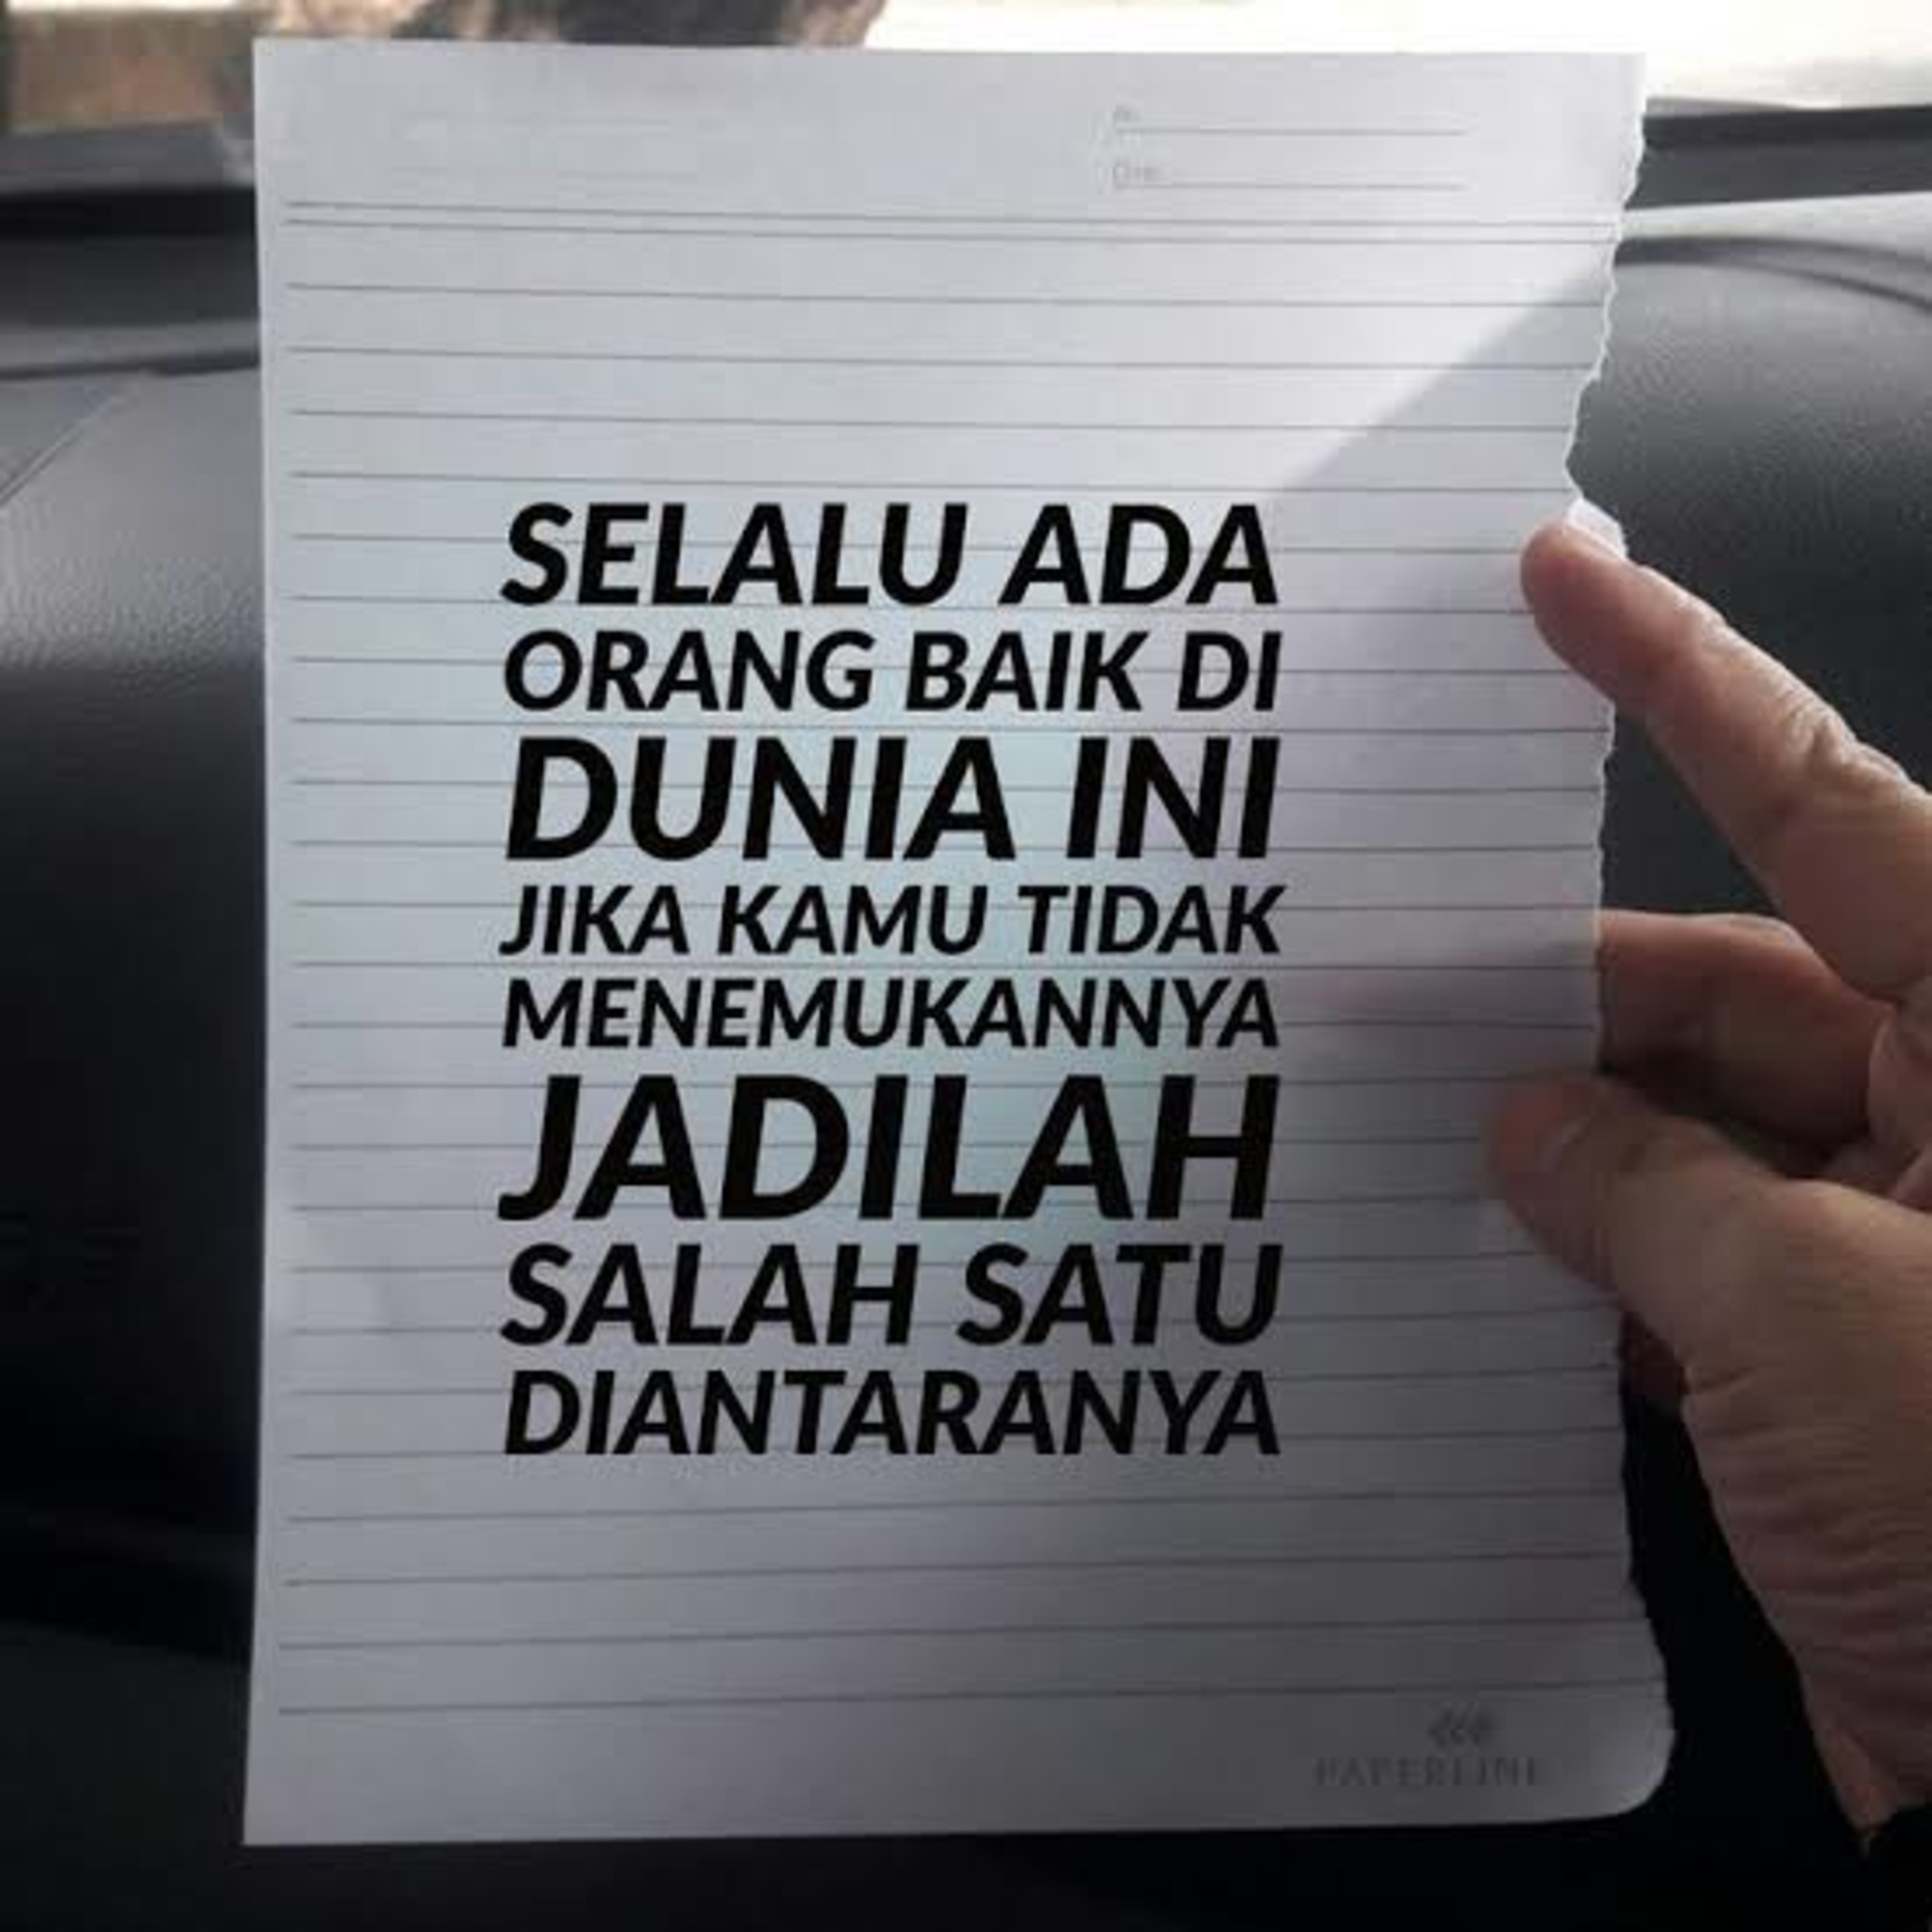 SELALU ADA
ORANG BAIK DI
DUNIA INI
JIKA KAMU TIDAK
MENEMUKANNYA
JADILAH
SALAH SATU
DIANTARANYA
PAPERLINE